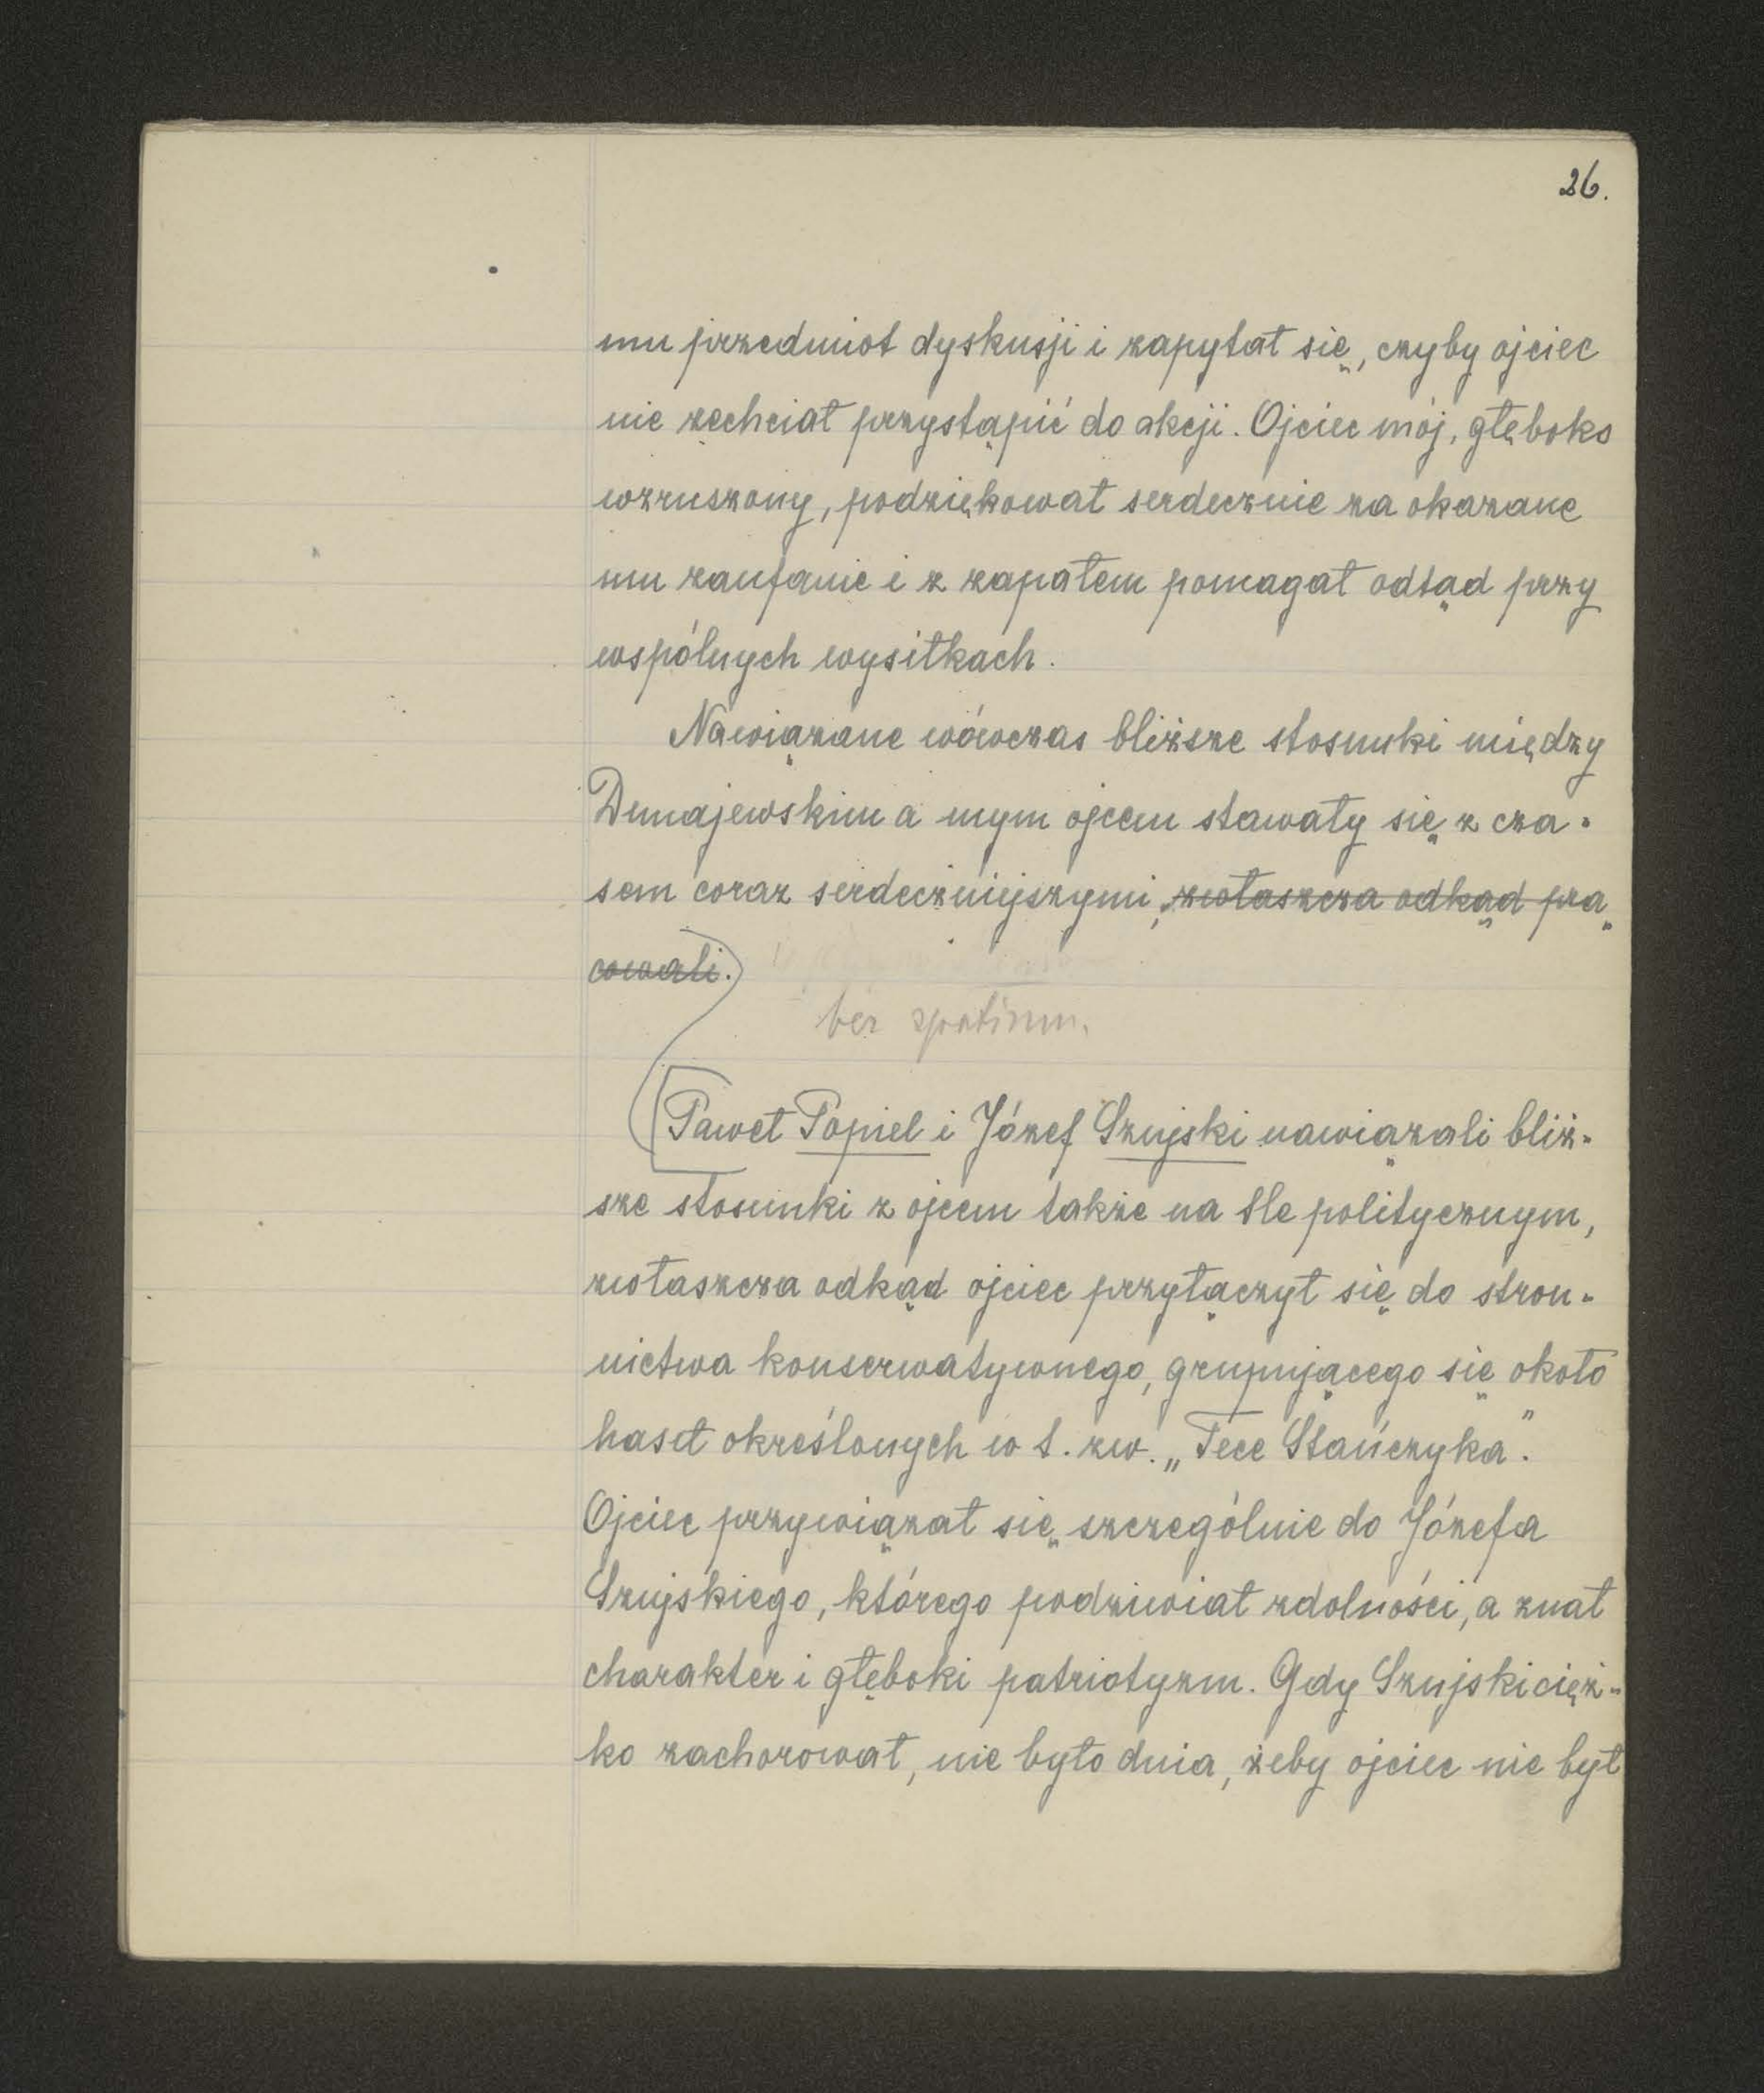 26.
mu przedmiot dyskusji i zapytał się, czyby ojciec
nie zechciał przystąpić do akcji. Ojciec mój, głęboko
wzruszony, podziękował serdecznie za okazane
mu zaufanie i z zapałem pomagał odtąd przy
wspólnych wysiłkach.
Nawiązane wówczas bliższe stosunki między
Dunajewskim a mym ojcem stawały się z cza-
sem coraz serdeczniejszymi, zwłaszcza odkąd pra-
cowali.
bez spatium.
Paweł Popiel i Józef Szujski nawiązali bliż-
sze stosunki z ojcem także na tle politycznym,
zwłaszcza odkąd ojciec przyłączył się do stron-
nictwa konserwatywnego, grupującego się około
haseł określonych w t. zw. „Tece Stańczyka".
Ojciec przywiązał się szczególnie do Józefa
Szujskiego, którego podziwiał zdolności, a znał
charakter i głęboki patriotyzm. Gdy Szujski cięż-
ko zachorował, nie było dnia, żeby ojciec nie był